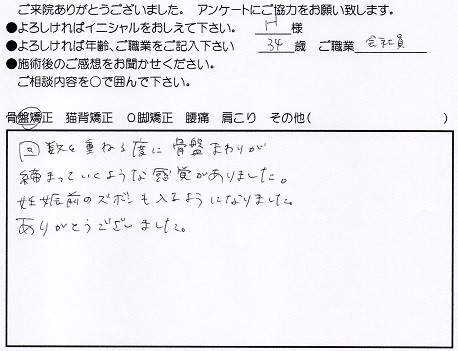 ご来院ありがとうございました。 アンケートにご協力をお願い致します。
●よろしければイニシャルをおしえて下さい。 H 様
●よろしければ年齢、ご職業をご記入下さい 34 歳 ご職業 会社員
●施術後のご感想をお聞かせください。
ご相談内容を○で囲んで下さい。
骨盤矯正 猫背矯正 O脚矯正 腰痛 肩こり その他( )
回数を重ねる度に骨盤まわりが
締まっていくような感覚がありました。
妊娠前のズボンも入るようになりました。
ありがとうございました。